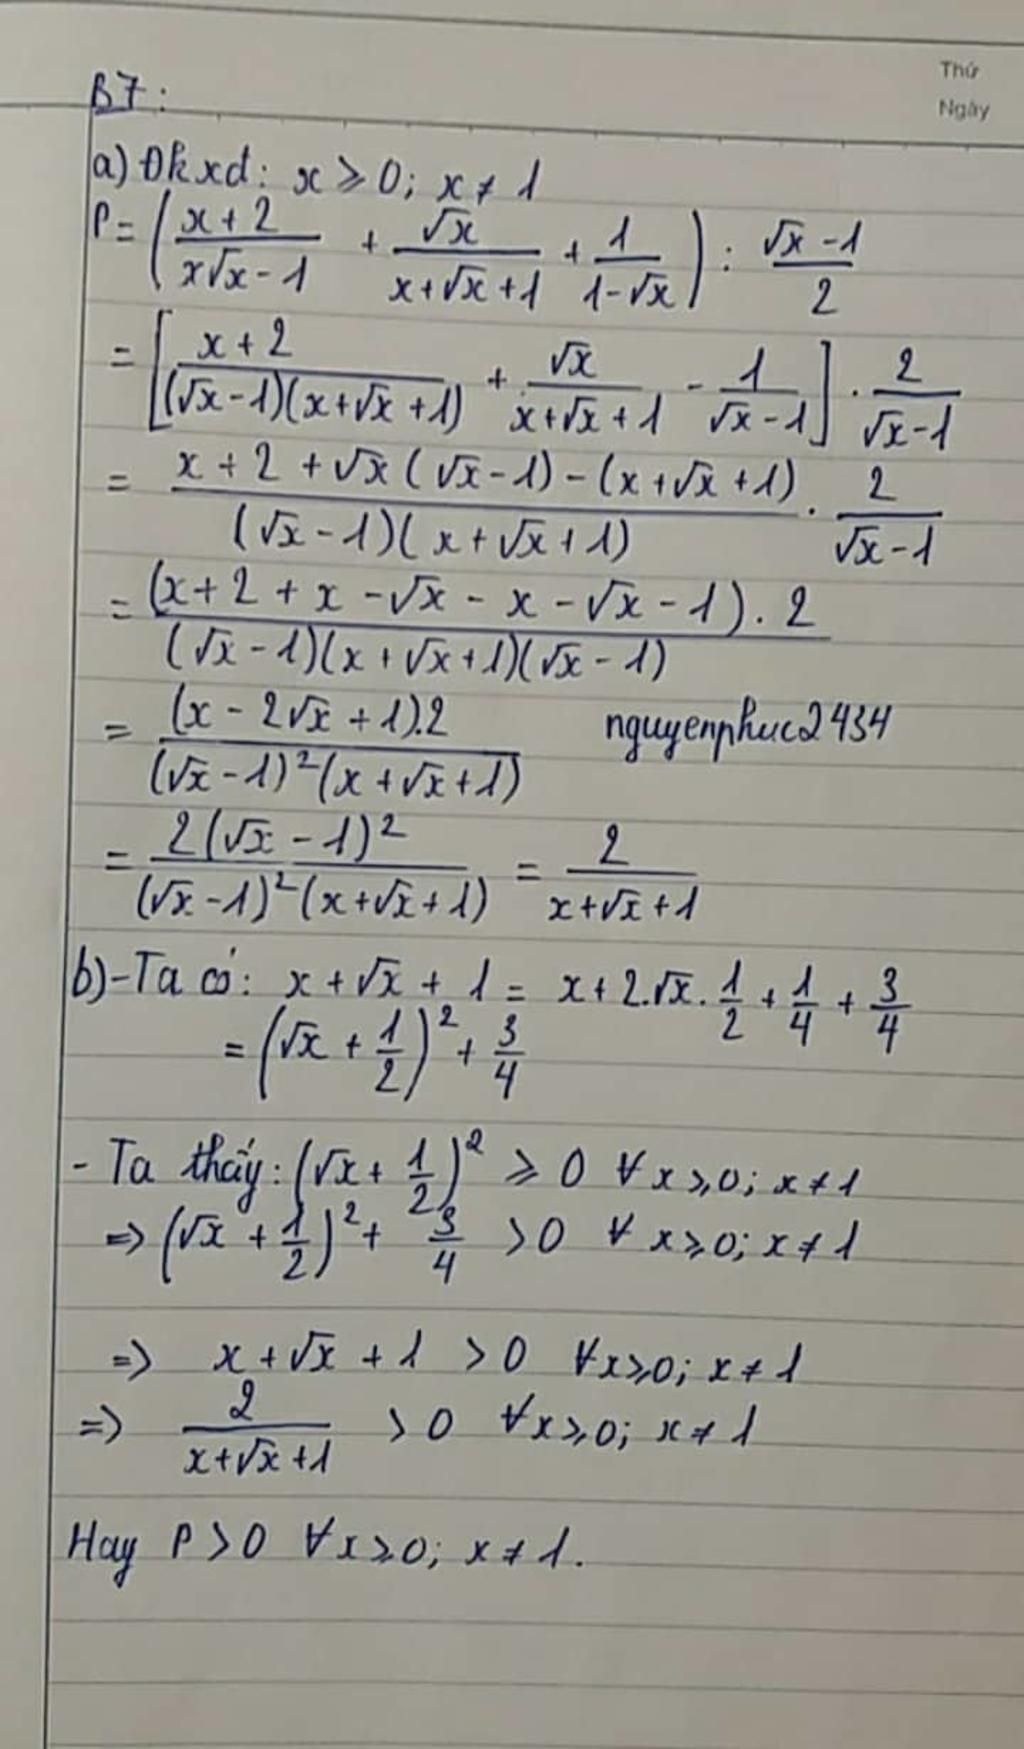 Thứ
Ngày
B7:
a) Đkxd: x ≥ 0; x ≠ 1
P = ( (x + 2)/(x√x - 1) + √x/(x + √x + 1) + 1/(1 - √x) ) : (√x - 1)/2
= [ (x + 2)/((√x - 1)(x + √x + 1)) + √x/(x + √x + 1) - 1/(√x - 1) ] . 2/(√x - 1)
= (x + 2 + √x(√x - 1) - (x + √x + 1))/((√x - 1)(x + √x + 1)) . 2/(√x - 1)
= ((x + 2 + x - √x - x - √x - 1) . 2)/((√x - 1)(x + √x + 1)(√x - 1))
= ((x - 2√x + 1).2)/((√x - 1)²(x + √x + 1)) nguyenphuc2434
= (2(√x - 1)²)/((√x - 1)²(x + √x + 1)) = 2/(x + √x + 1)
b) - Ta có: x + √x + 1 = x + 2.√x . 1/2 + 1/4 + 3/4
= (√x + 1/2)² + 3/4
- Ta thấy: (√x + 1/2)² ≥ 0 ∀ x ≥ 0; x ≠ 1
=> (√x + 1/2)² + 3/4 > 0 ∀ x ≥ 0; x ≠ 1
=> x + √x + 1 > 0 ∀ x ≥ 0; x ≠ 1
=> 2/(x + √x + 1) > 0 ∀ x ≥ 0; x ≠ 1
Hay P > 0 ∀ x ≥ 0; x ≠ 1.